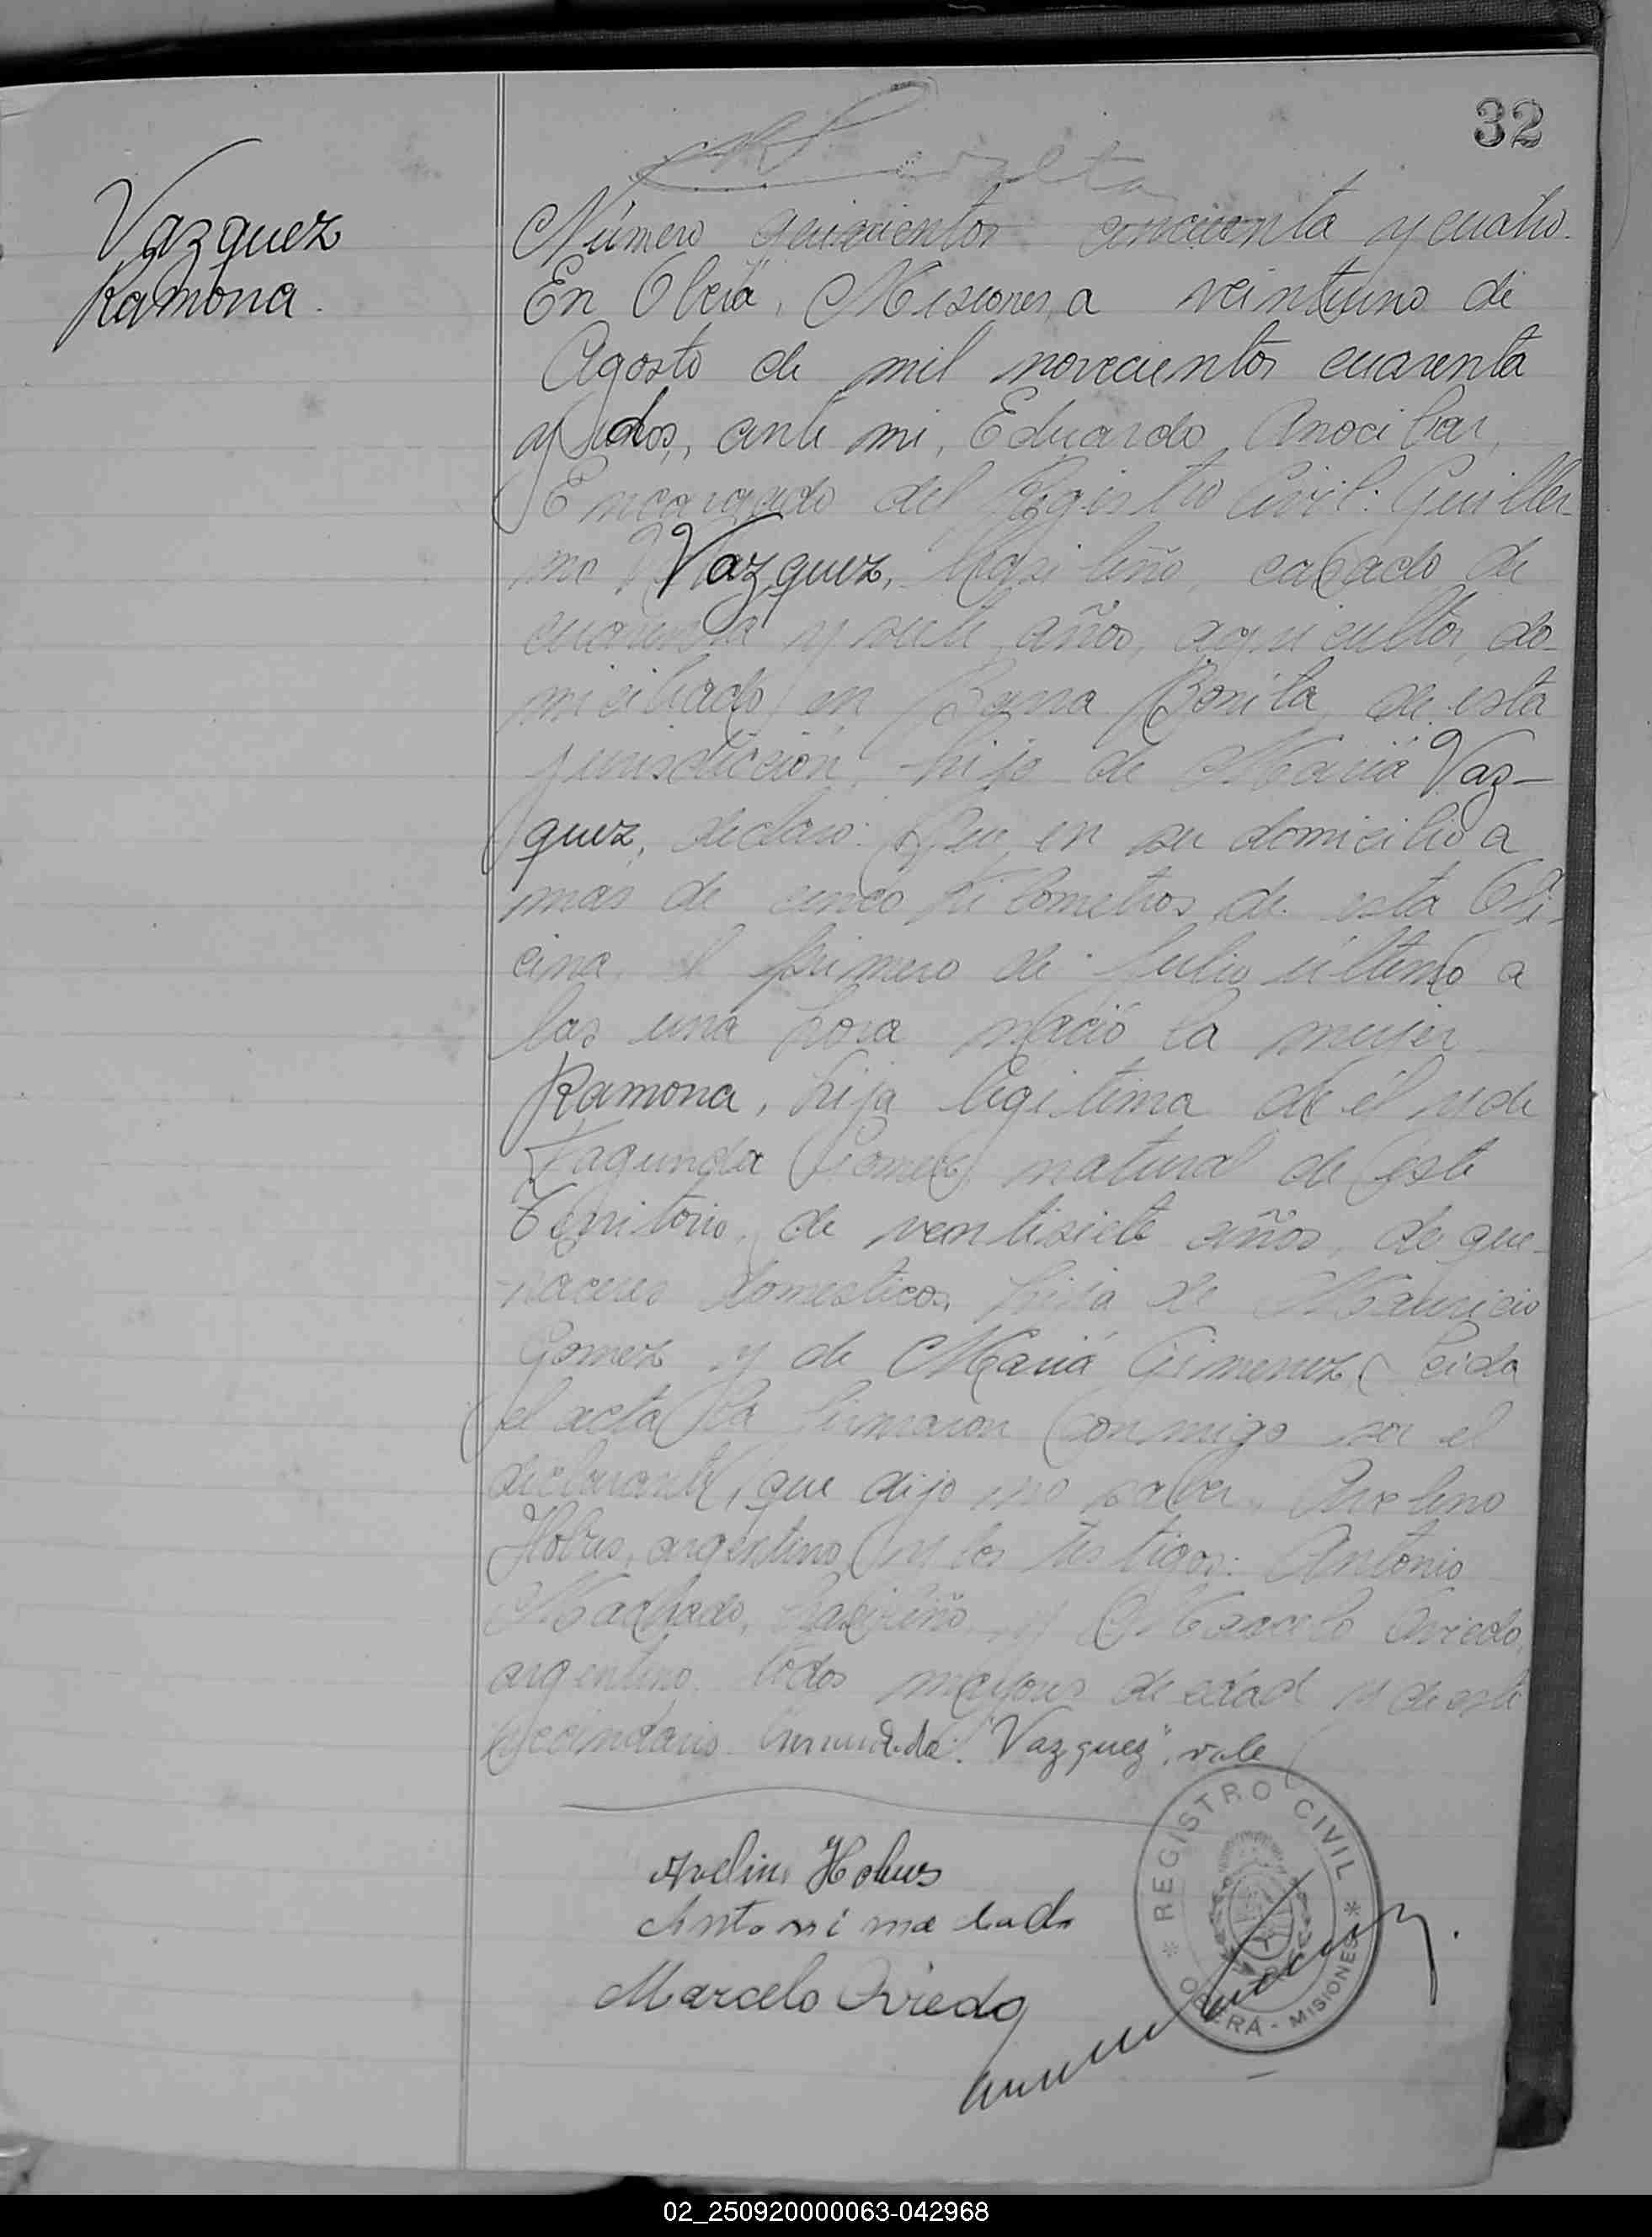 32
Vazquez
Ramona.
Número quinientos cincuenta y cuatro.
En Oberá, Misiones, a veintiuno de
Agosto de mil novecientos cuarenta
y dos, ante mi, Eduardo Anocibar,
Encargado del Registro Civil: Guiller-
mo Vazquez, brasileño, casado de
cuarenta y siete años, agricultor, do-
miciliado en Barra Bonita, de esta
jurisdicción, hijo de María Vaz-
quez, declaró: Que en su domicilio a
más de cinco kilometros de esta Ofi-
cina, el primero de Julio último a
las una hora nació la mujer
Ramona, hija legitima de él y de
Fagunda Gomez, natural de este
Territorio, de ventisiete años, de que-
haceres domesticos, hija de Mauricio
Gomez y de María Gimenez. Leida
el acta la firmaron conmigo por el
declarante, que dijo no saber, Avelino
Hobus, argentino y los testigos: Antonio
Machado, brasileño, y Marcelo Oviedo,
argentino. todos mayores de edad y de este
vecindario. Enmendado: "Vazquez", vale
Avelino Hobus
Marcelo Oviedo
* REGISTRO CIVIL *
OBERÁ - MISIONES
02_250920000063-042968